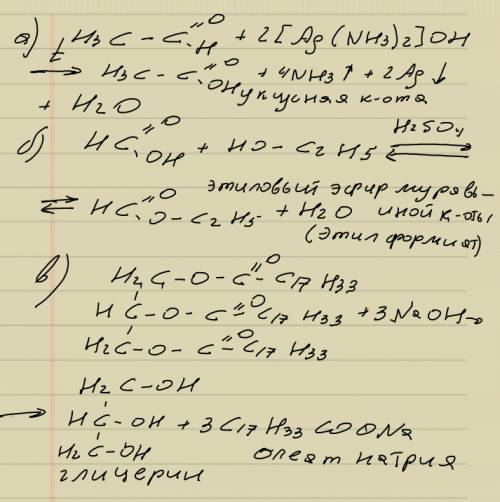 а) H3C - C =O H + 2[Ag(NH3)2]OH
t → H3C - C =O OH + 4NH3↑ + 2Ag↓
+ H2O уксусная к-ота
б) HC =O OH + HO - C2H5 H2SO4 ⇄
⇄ HC =O O - C2H5 + H2O этиловый эфир муравь-
иной к-оты
(этилформиат)
в) H2C - O - C =O C17H33
HC - O - C =O C17H33 + 3NaOH →
H2C - O - C =O C17H33
H2C - OH
→ HC - OH + 3C17H33COONa
H2C - OH олеат натрия
глицерин